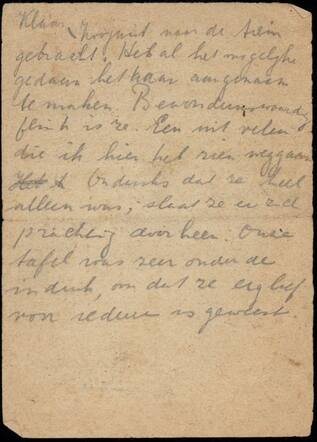 Klaar, Hooguit naar de trein
gebracht. Heb al het mogelijke
gedaan het haar aangenaam
te maken. Bewonderenswaardig
flink is ze. Een uit velen
die ik hier heb zien weggaan
Ondanks dat ze heel
alleen was, slaat ze er zich
prachtig doorheen. Onze
tafel was zeer onder de
indruk, om dat ze erg lief
voor iedereen is geweest.